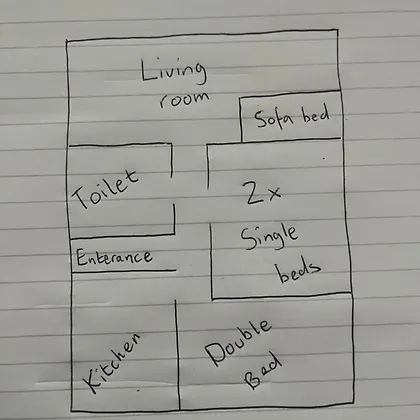 Living
room
Sofa bed
Toilet
2x
Single
beds
Enterance
Kitchen
Double
Bed